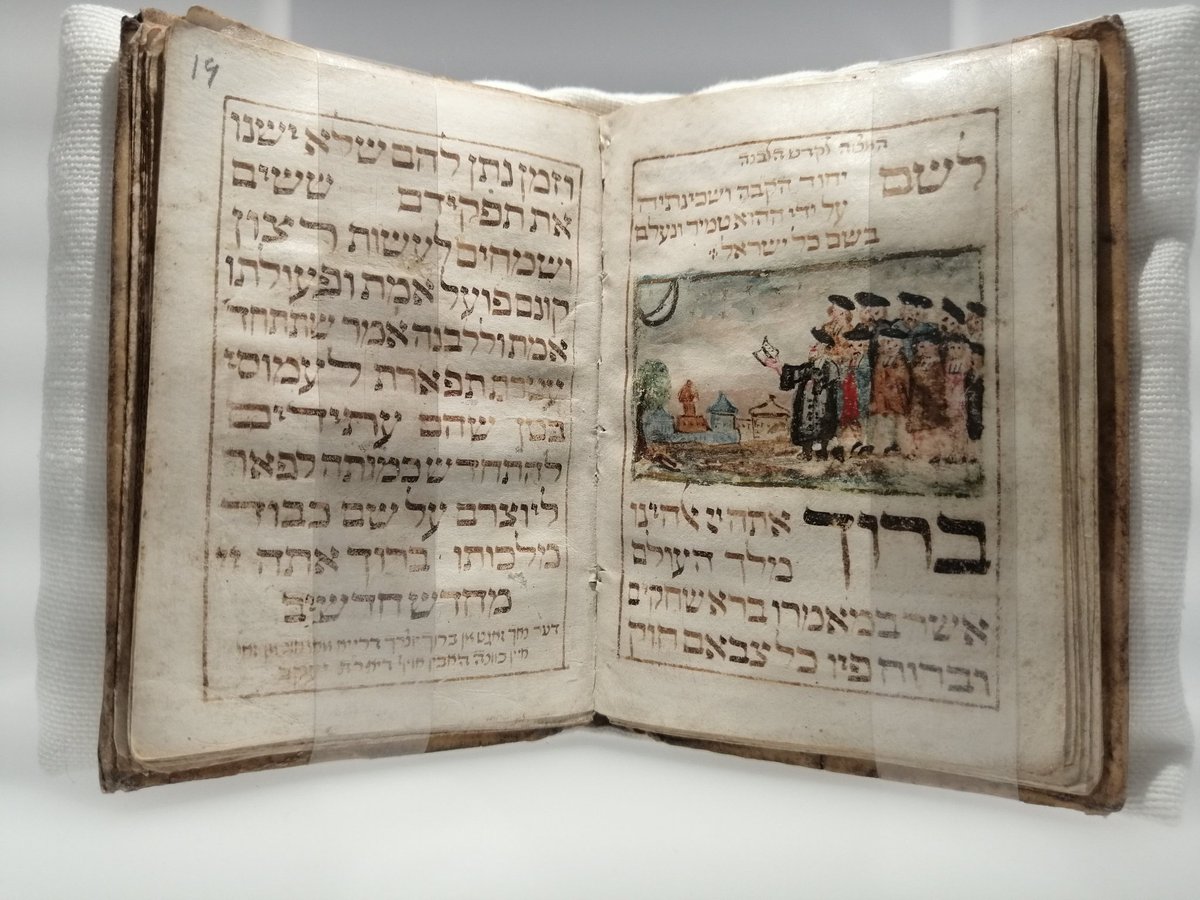 לקדש הלבנה
לשם יחוד הקבה ושכינתיה
על ידי ההוא טמיר ונעלם
בשם כל ישראל
ברוך אתה יי אלהינו
מלך העולם
אשר במאמרו ברא שחקים
וברוח פיו כל צבאם חוק
19
וזמן נתן להם שלא ישנו
את תפקידם ששים
ושמחים לעשות רצון
קונם פועל אמת ופעולתו
אמתו ללבנה אמר שתתחד
עטרת תפארת לעמוסי
בטן שהם עתידים
להתחדש כמותה לפאר
ליוצרם על שם כבוד
מלכותו ברוך אתה יי
מחדש חדשים
דער נאך זאגט מן ברוך
יעקב